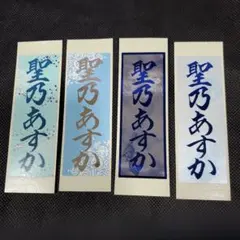 聖乃あすか
聖乃あすか
聖乃あすか
聖乃あすか